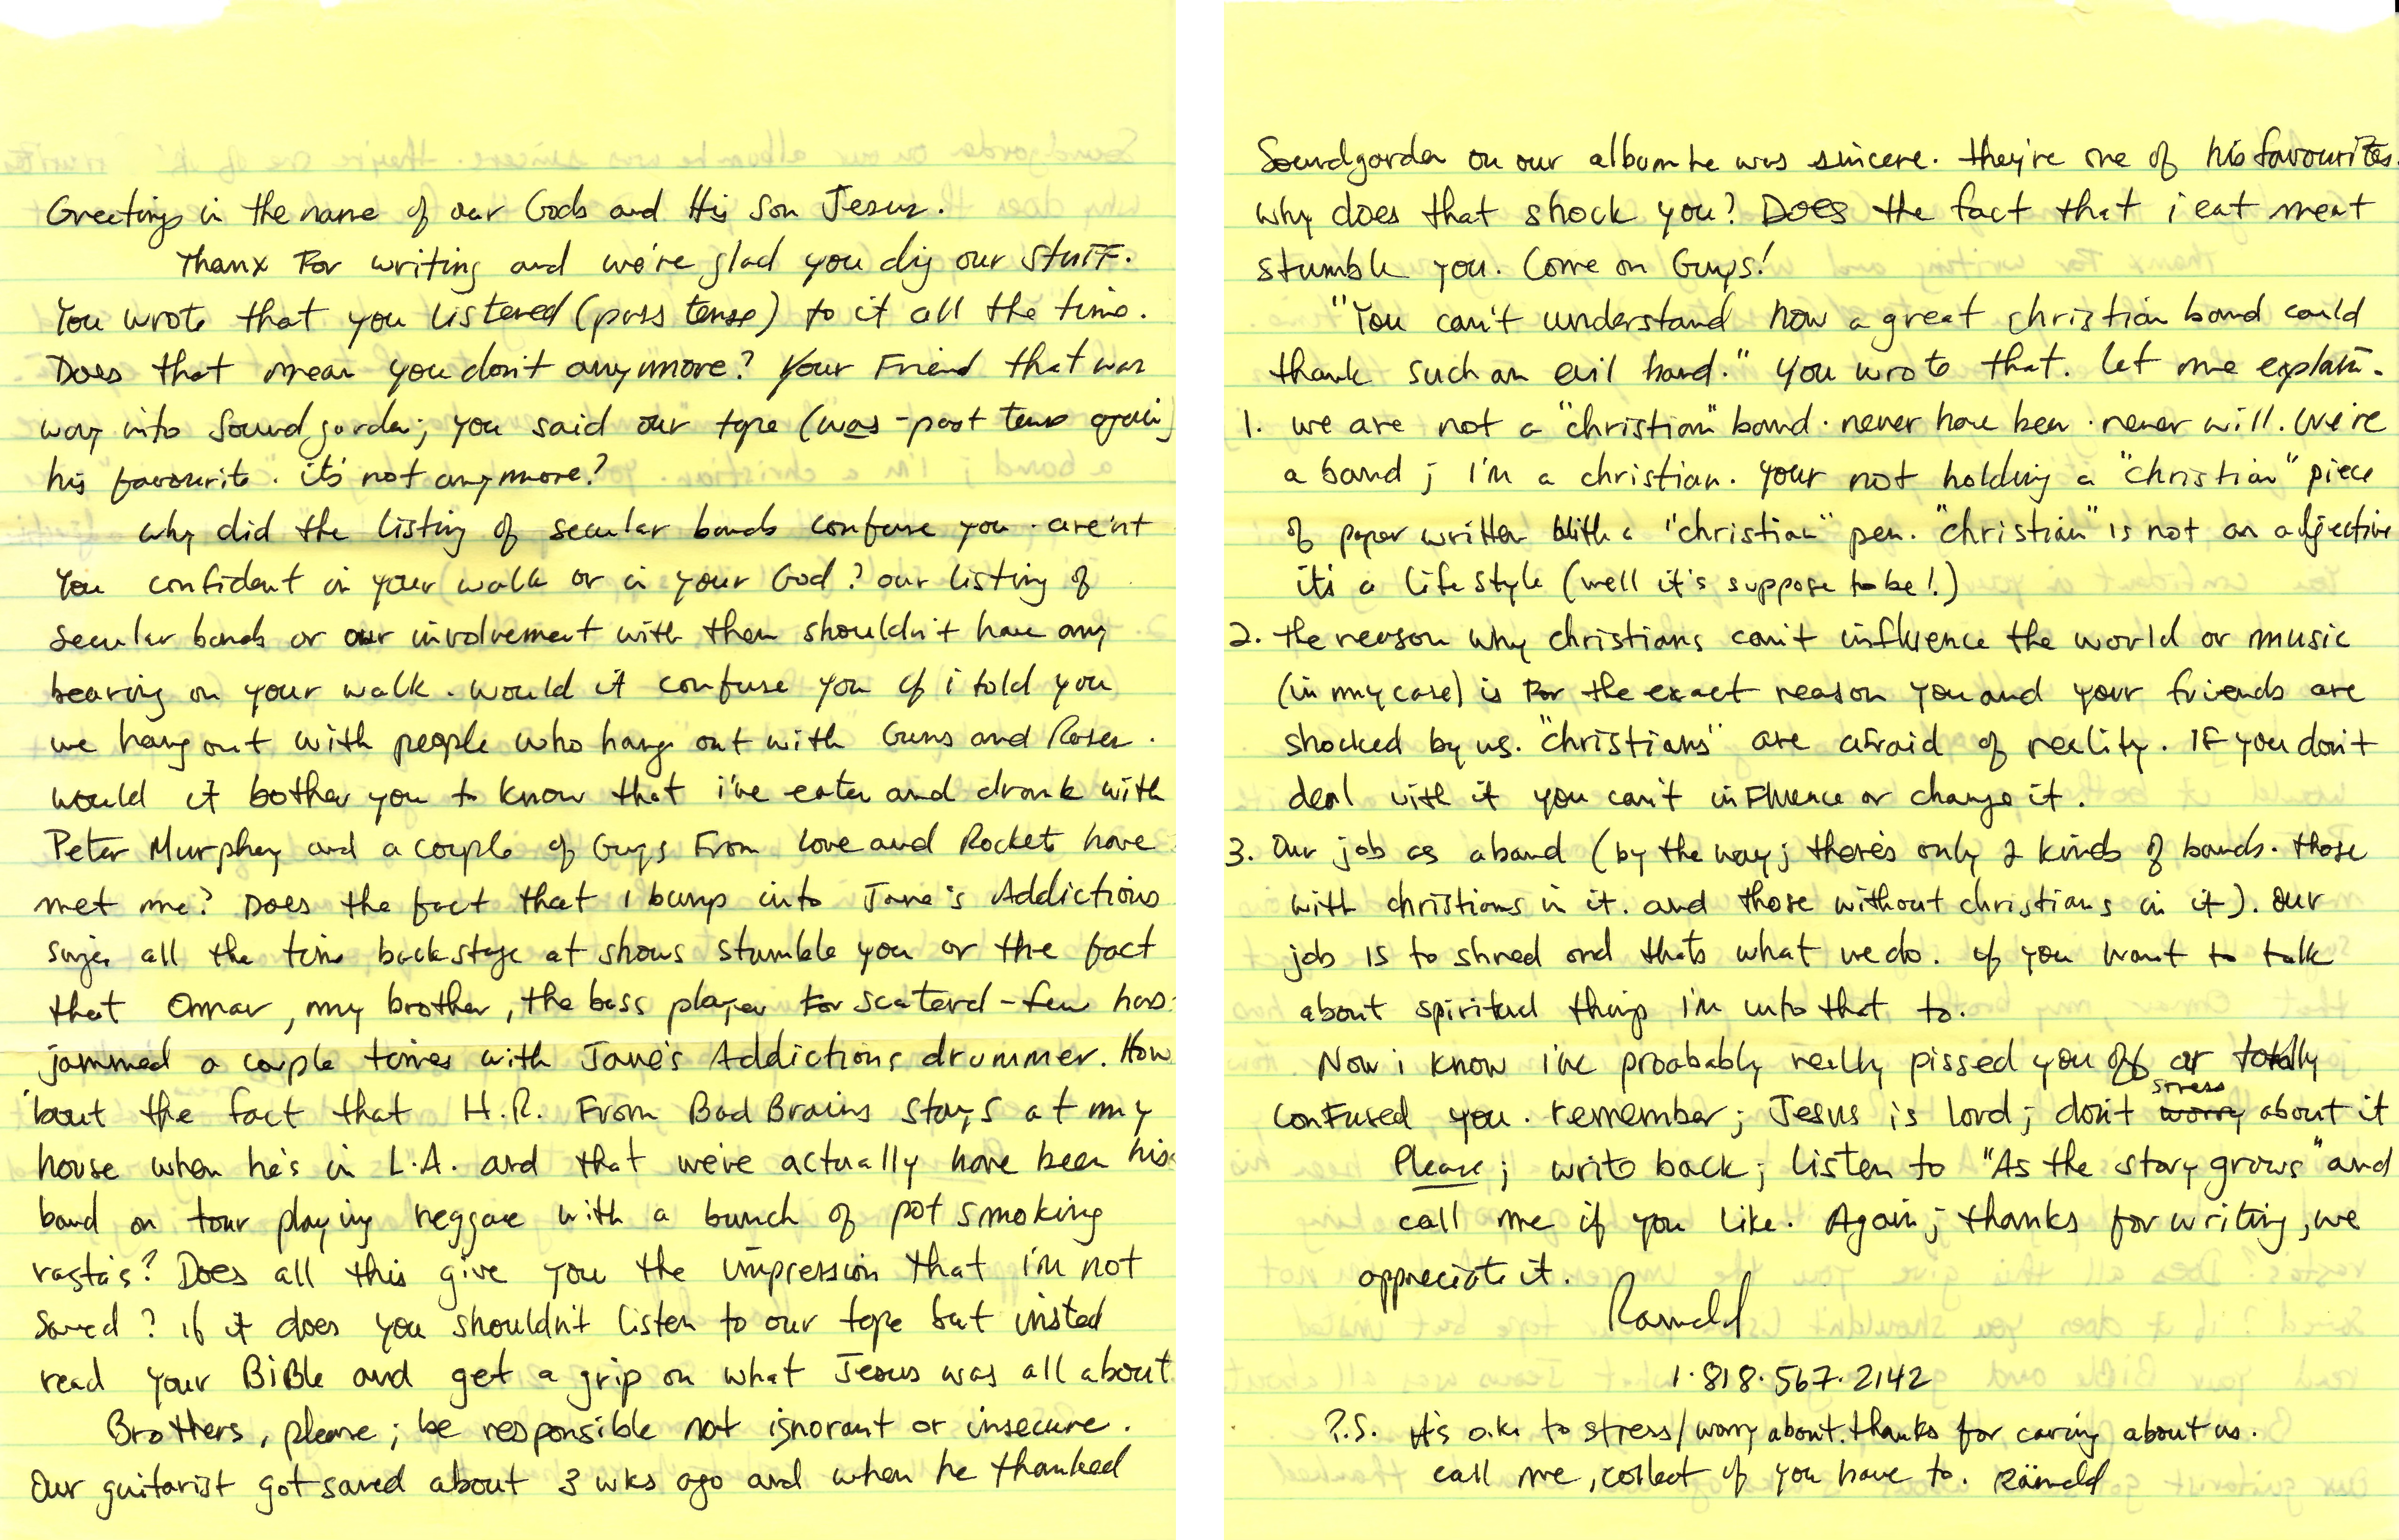 Greetings in the name of our Gods and His Son Jesus.
Thanx For writing and we're glad you dig our stuff.
You wrote that you listened (pass tense) to it all the time.
Does that mean you don't anymore? Your Friend that was
way into Soundgarden; you said our tape (was - past tense again)
his "favourite". it's not anymore?
Why did the listing of secular bands confuse you. are'nt
You confident in your walk or in your God? our listing of
secular bands or our involvement with them shouldn't have any
bearing on your walk. Would it confuse you if i told you
we hang out with people who hang out with Guns and Roses.
would it bother you to know that i've eaten and drank with
Peter Murphey and a couple of Guys From Love and Rockets have
met me? Does the fact that I bump into Jane's Addictions
singer all the time backstage at shows stumble you or the fact
that Omar, my brother, the bass player For scaterd-few has
jammed a couple times with Jane's Addictions drummer. How
'bout the fact that H.R. From Bad Brains stays at my
house when he's in L.A. and that we've actually have been his
band on tour playing reggae with a bunch of pot smoking
rasta's? Does all this give you the impression that i'm not
Saved? if it does you shouldn't listen to our tape but insted
read your BiBle and get a grip on what Jesus was all about
Brothers, please; be responsible not ignorant or insecure.
Our guitarist got saved about 3 wks ago and when he thanked
Soundgarden on our album he was sincere. they're one of his favourites.
Why does that shock you? Does the fact that i eat meat
stumble you. Come on Guys!
"You can't understand how a great christian band could
thank such an evil band." You wrote that. let me explain.
1. we are not a "christian" band. never have been. never will. We're
a band; I'm a christian. your not holding a "christian" piece
of paper written with a "christian" pen. "christian" is not an adjective
it's a lifestyle (well it's suppose to be!)
2. the reason why christians can't influence the world or music
(in my case) is For the exact reason you and your friends are
shocked by us. "christians" are afraid of reality. IF you don't
deal with it you can't inFluence or change it.
3. Our job as a band (by the way; there's only 2 kinds of bands. those
with christians in it. and those without christians in it). Our
job is to shred and thats what we do. if you want to talk
about spiritual things I'm into that to.
Now i know i've proabably really pissed you off or totally
conFused you. remember; Jesus is lord; don't worry stress about it
Please; write back; listen to "As the story grows" and
call me if you like. Again; thanks for writing, we
appreciate it.
Ramald
1.818.567.2142
P.S. it's o.k. to stress/worry about. thanks for caring about us.
call me, collect if you have to. Ramald